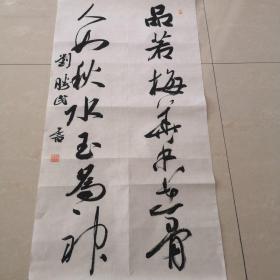 品若梅华香在骨
人如秋水玉为神
刘胜民书